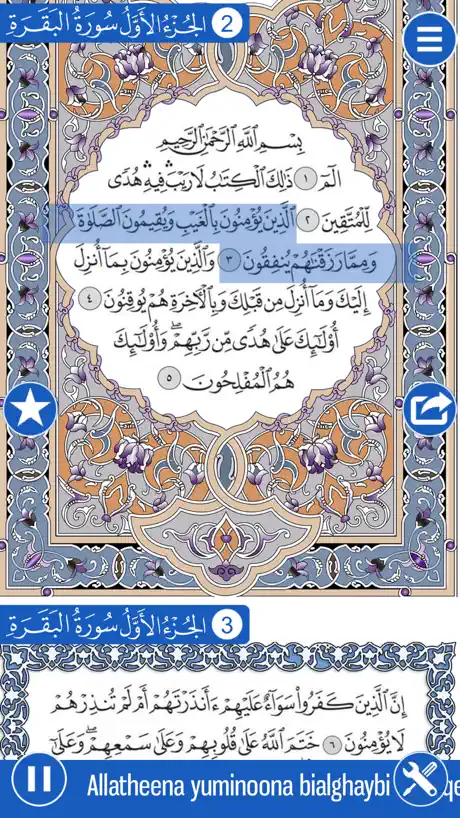 الجُزْءُ الأَوَّلُ سُورَةُ البَقَرَةِ 2
بِسْمِ اللَّهِ الرَّحْمَٰنِ الرَّحِيمِ
الٓمٓ ١ ذَٰلِكَ الْكِتَٰبُ لَا رَيْبَۛ فِيهِۛ هُدًى
لِّلْمُتَّقِينَ ٢ الَّذِينَ يُؤْمِنُونَ بِالْغَيْبِ وَيُقِيمُونَ الصَّلَوٰةَ
وَمِمَّا رَزَقْنَٰهُمْ يُنفِقُونَ ٣ وَالَّذِينَ يُؤْمِنُونَ بِمَآ أُنزِلَ
إِلَيْكَ وَمَآ أُنزِلَ مِن قَبْلِكَ وَبِالْآخِرَةِ هُمْ يُوقِنُونَ ٤
أُولَٰٓئِكَ عَلَىٰ هُدًى مِّن رَّبِّهِمْۖ وَأُولَٰٓئِكَ
هُمُ الْمُفْلِحُونَ ٥
الجُزْءُ الأَوَّلُ سُورَةُ البَقَرَةِ 3
إِنَّ الَّذِينَ كَفَرُوا سَوَآءٌ عَلَيْهِمْ ءَأَنذَرْتَهُمْ أَمْ لَمْ تُنذِرْهُمْ
لَا يُؤْمِنُونَ ٦ خَتَمَ اللَّهُ عَلَىٰ قُلُوبِهِمْ وَعَلَىٰ سَمْعِهِمْۖ وَعَلَىٰٓ
Allatheena yuminoona bialghaybi